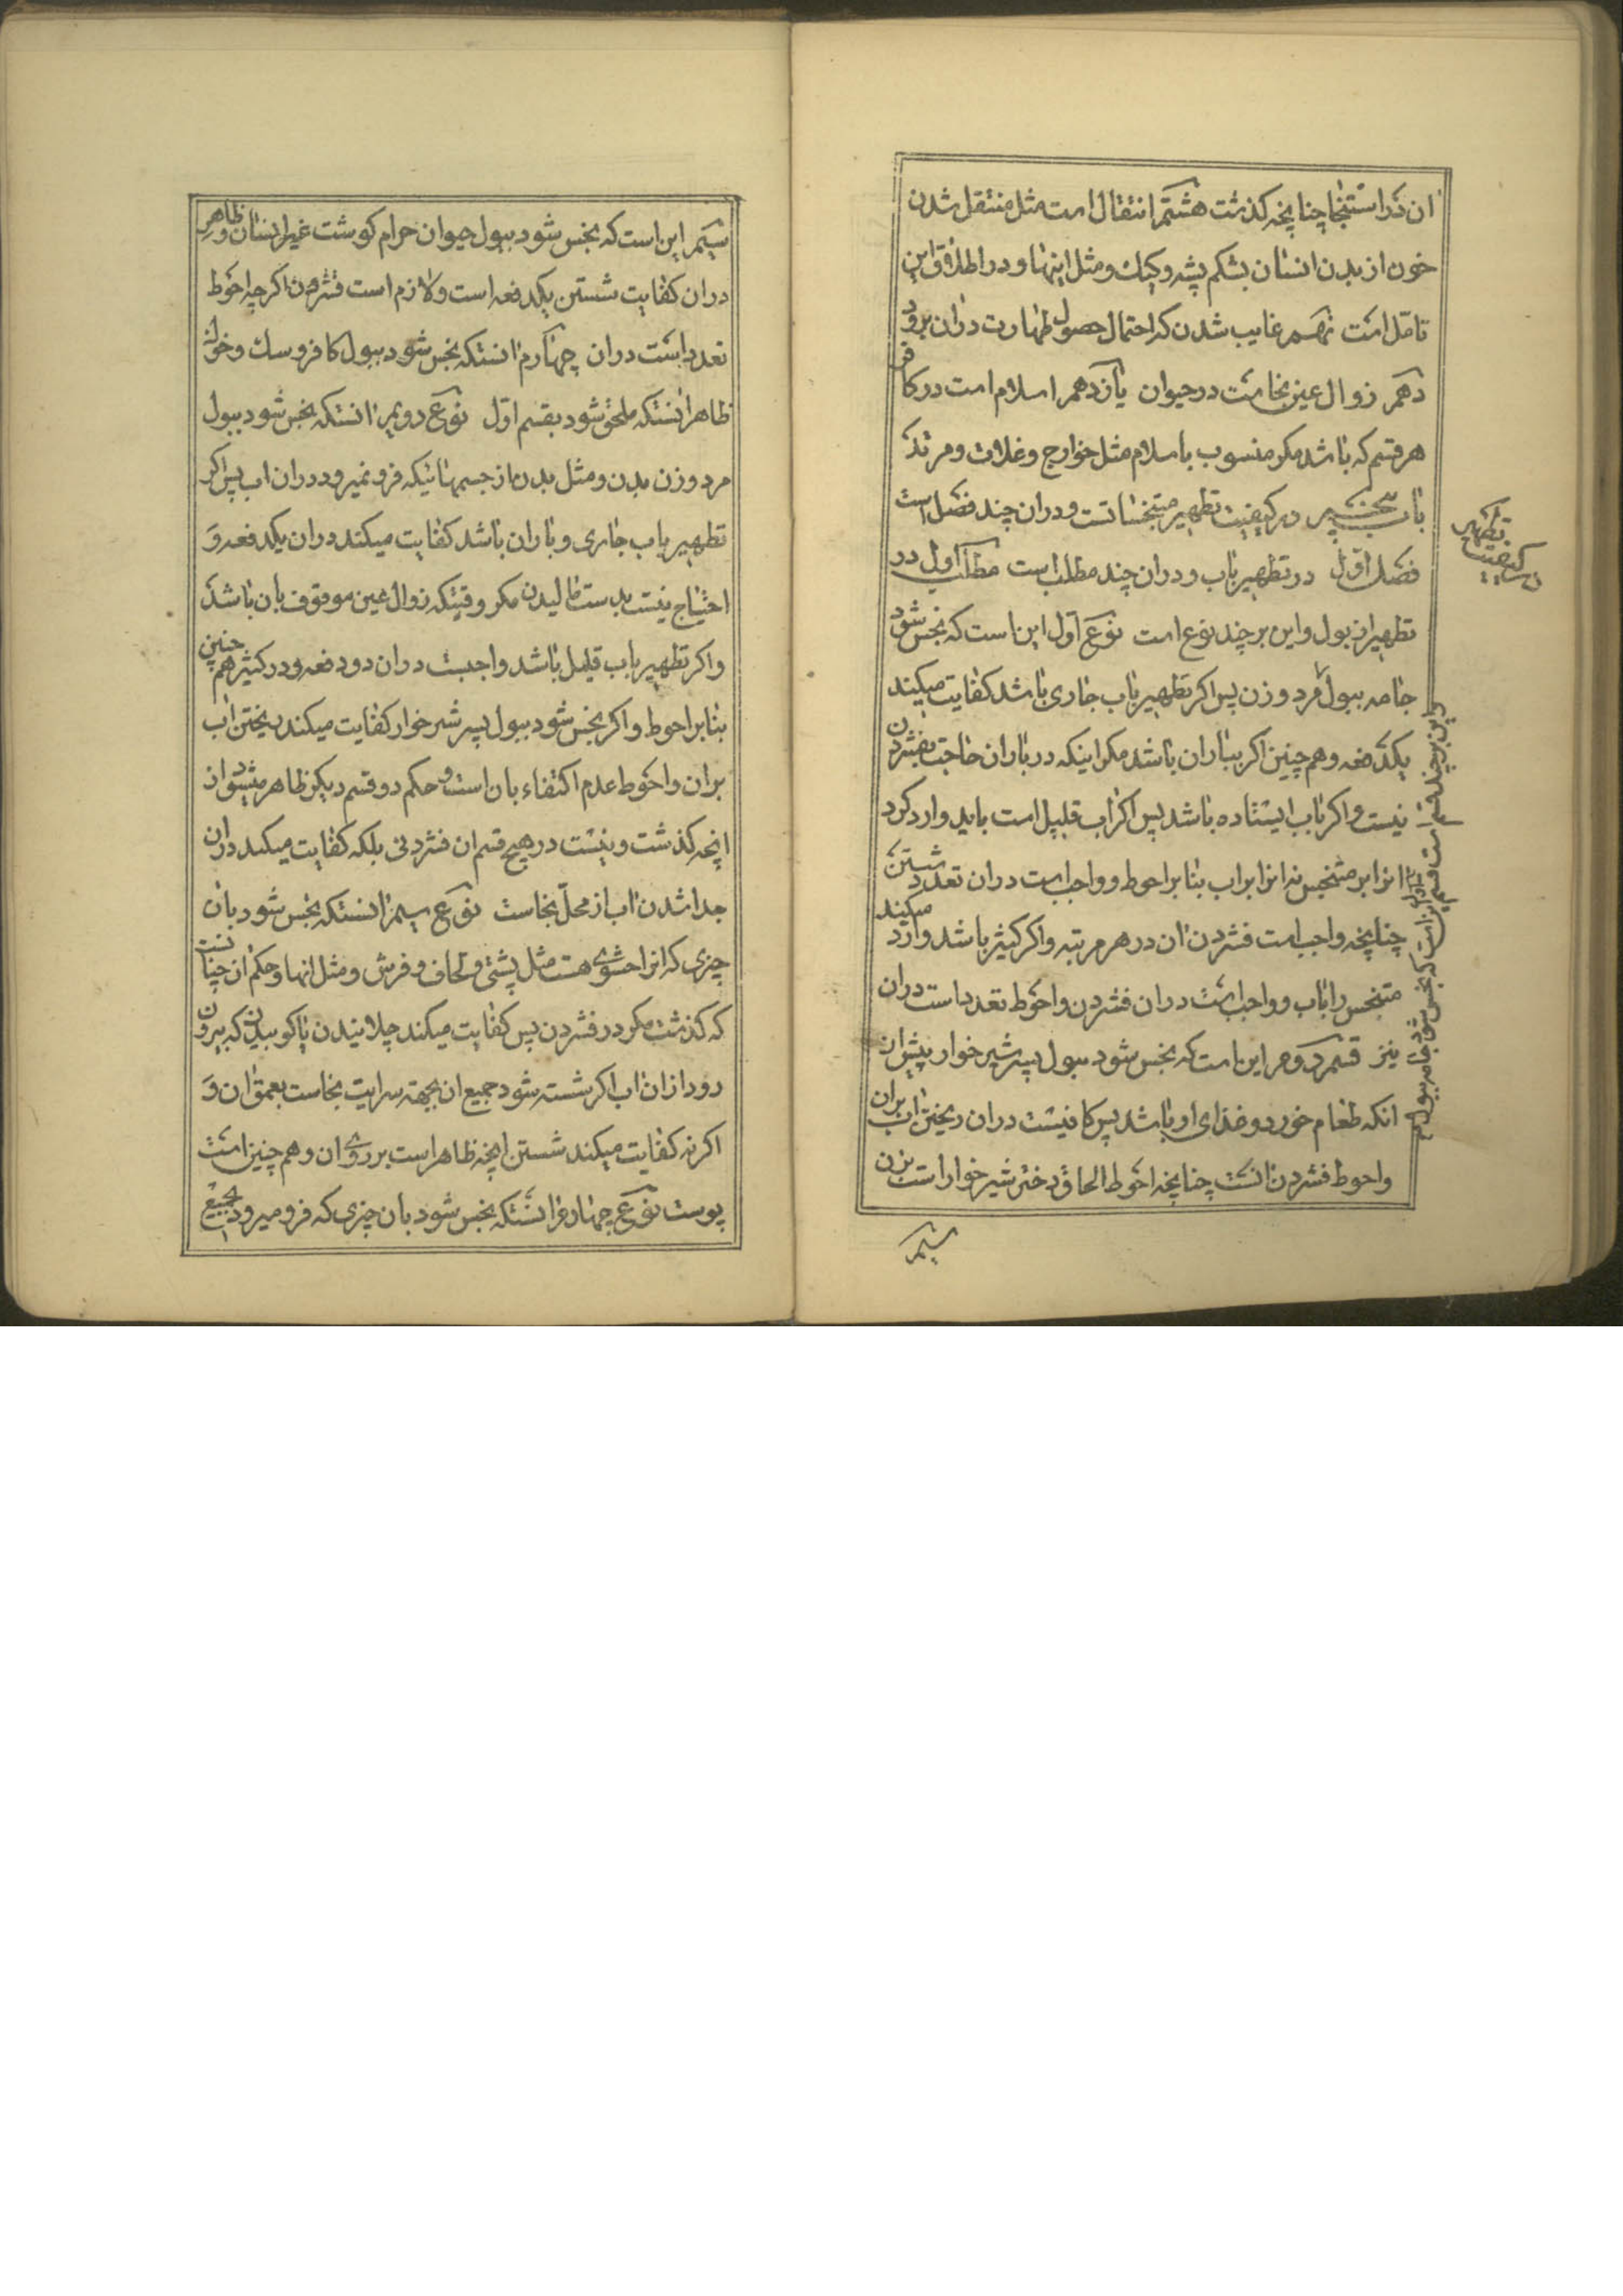 ان در استنجا چنانچه كذشت هشتم انتقال است مثل منتقل شدن
خون از بدن انسان بشكم پشه و كيك و مثل اينها و در اطلاق اين
تامل است نهم غايب شدن كه احتمال حصول طهارت دران برود
دهم زوال عين نجاست در حيوان يازدهم اسلام است در كافر
هر قسم كه باشد مكر منسوب باسلام مثل خوارج و غلات و مرتد
باب پنجم در كيفيت تطهير متنجسات است و دران چند فصل است
فصل اول در تطهير باب و دران چند مطلب است مطلب اول در
تطهير از بول و اين بر چند نوع است نوع اول اين است كه نجس شود
جامه ببول مرد و زن پس اكر تطهير باب جارى باشد كفايت ميكند
يكدفعه و هم چنين اكر بباران باشد مكر اينكه در باران حاجت بفشردن
نيست و اكر باب ايستاده باشد پس اكر اب قليل است بايد وارد كرد
انرا بر متنجس نه انرا بر اب بنا بر احوط و واجب است دران تعدد شستن
چنانچه واجب است فشردن ان در هر مرتبه و اكر كثير باشد وارد ميكند
متنجس را باب و واجب است دران فشردن و احوط تعدد است دران
نيز قسم دوم اين است كه نجس شود ببول پسر شير خوار پيش از
انكه طعام خورد و غذاى او باشد پس كافيست دران ريختن اب بران
و احوط فشردن انست چنانچه احوط الحاق دختر شير خوار است بزن
سيم
در كيفيت تطهير
و اين بر چند قسم است قسم اول اين است كه نجس شود جامه ببول
سيم اين است كه نجس شود ببول حيوان حرام كوشت غير انسان و ظاهر
دران كفايت شستن يكدفعه است و لازم است فشردن اكر چه احوط
تعدد است دران چهارم انستكه نجس شود ببول كافر و سك و خوك
ظاهر انستكه ملحق شود بقسم اول نوع دويم انستكه نجس شود ببول
مرد و زن بدن و مثل بدن از جسمهائيكه فرو نميرود دران اب پس اكر
تطهير باب جارى و باران باشد كفايت ميكند دران يكدفعه و
احتياج نيست بدست ماليدن مكر وقتيكه زوال عين موقوف بان باشد
و اكر تطهير باب قليل باشد واجبست دران دو دفعه و در كثير هم چنين
بنا بر احوط و اكر نجس شود ببول پسر شير خوار كفايت ميكند ريختن اب
بران و احوط عدم اكتفاء بان است و حكم دو قسم ديكر ظاهر ميشود از
انچه كذشت و نيست در هيچ قسم ان فشردنى بلكه كفايت ميكند دران
جدا شدن اب از محل نجاست نوع سيم انستكه نجس شود بان
چيزى كه انرا حشوى هست مثل پشتى و لحاف و فرش و مثل انها و حكم ان چنانست
كه كذشت مكر در فشردن پس كفايت ميكند چلانيدن يا كوبيدن كه بيرون
رود ازان اب اكر شسته شود جميع ان بجهة سرايت نجاست بعمق ان و
اكر نه كفايت ميكند شستن انچه ظاهر است بر روى ان و هم چنين است
پوست نوع چهارم انستكه نجس شود بان چيزى كه فرو ميرود بجميع